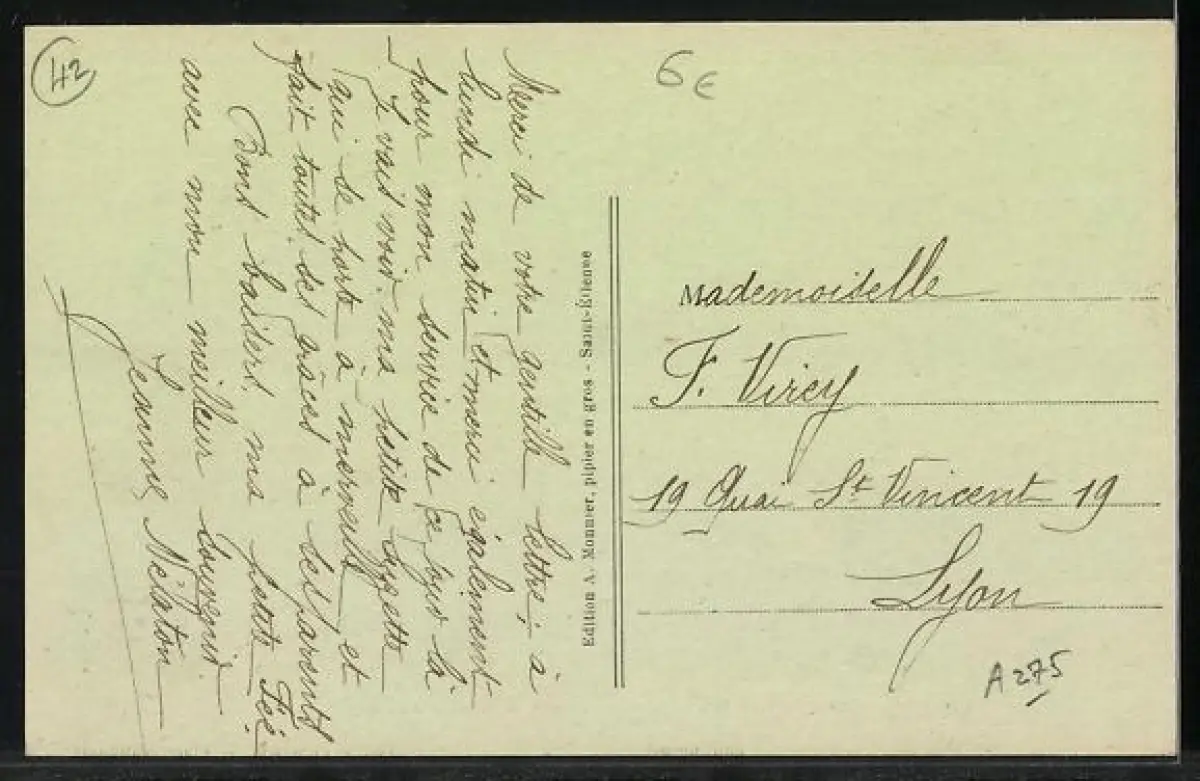 42
6€
Merci de votre gentille lettre; à
lundi matin et merci également
pour mon service de ce jour là
Je vais voir ma petite
qui se porte à merveille et
fait toutes ses grâces à ses parents
Bons baisers, ma petite Fée,
avec mon meilleur souvenir.
Jeanne Nélaton
Edition A. Monnier, pipier en gros - Saint-Étienne
Mademoiselle
F. Virey
19 Quai St Vincent 19
Lyon
A275